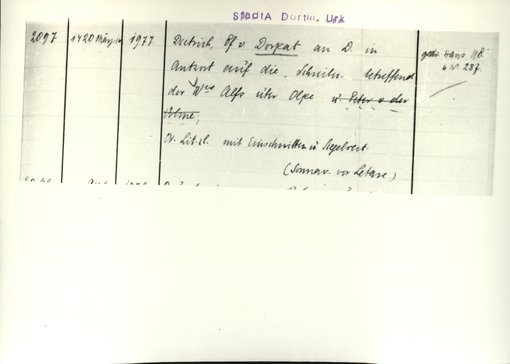 StadtA Dortm. Urk
2097 1420 März 1977 Dietrich, Bf v. Dorpat an D. in
Antwort auf die Schreiben betreffend
der Wwe Alfs über Olpe u. Peter v der
Volme,
Or. Lit. cl. mit Einschnitten u Siegelrest.
(Sonnav. vor Letare)
gedr. Hans. UB.
6 Nr 287.